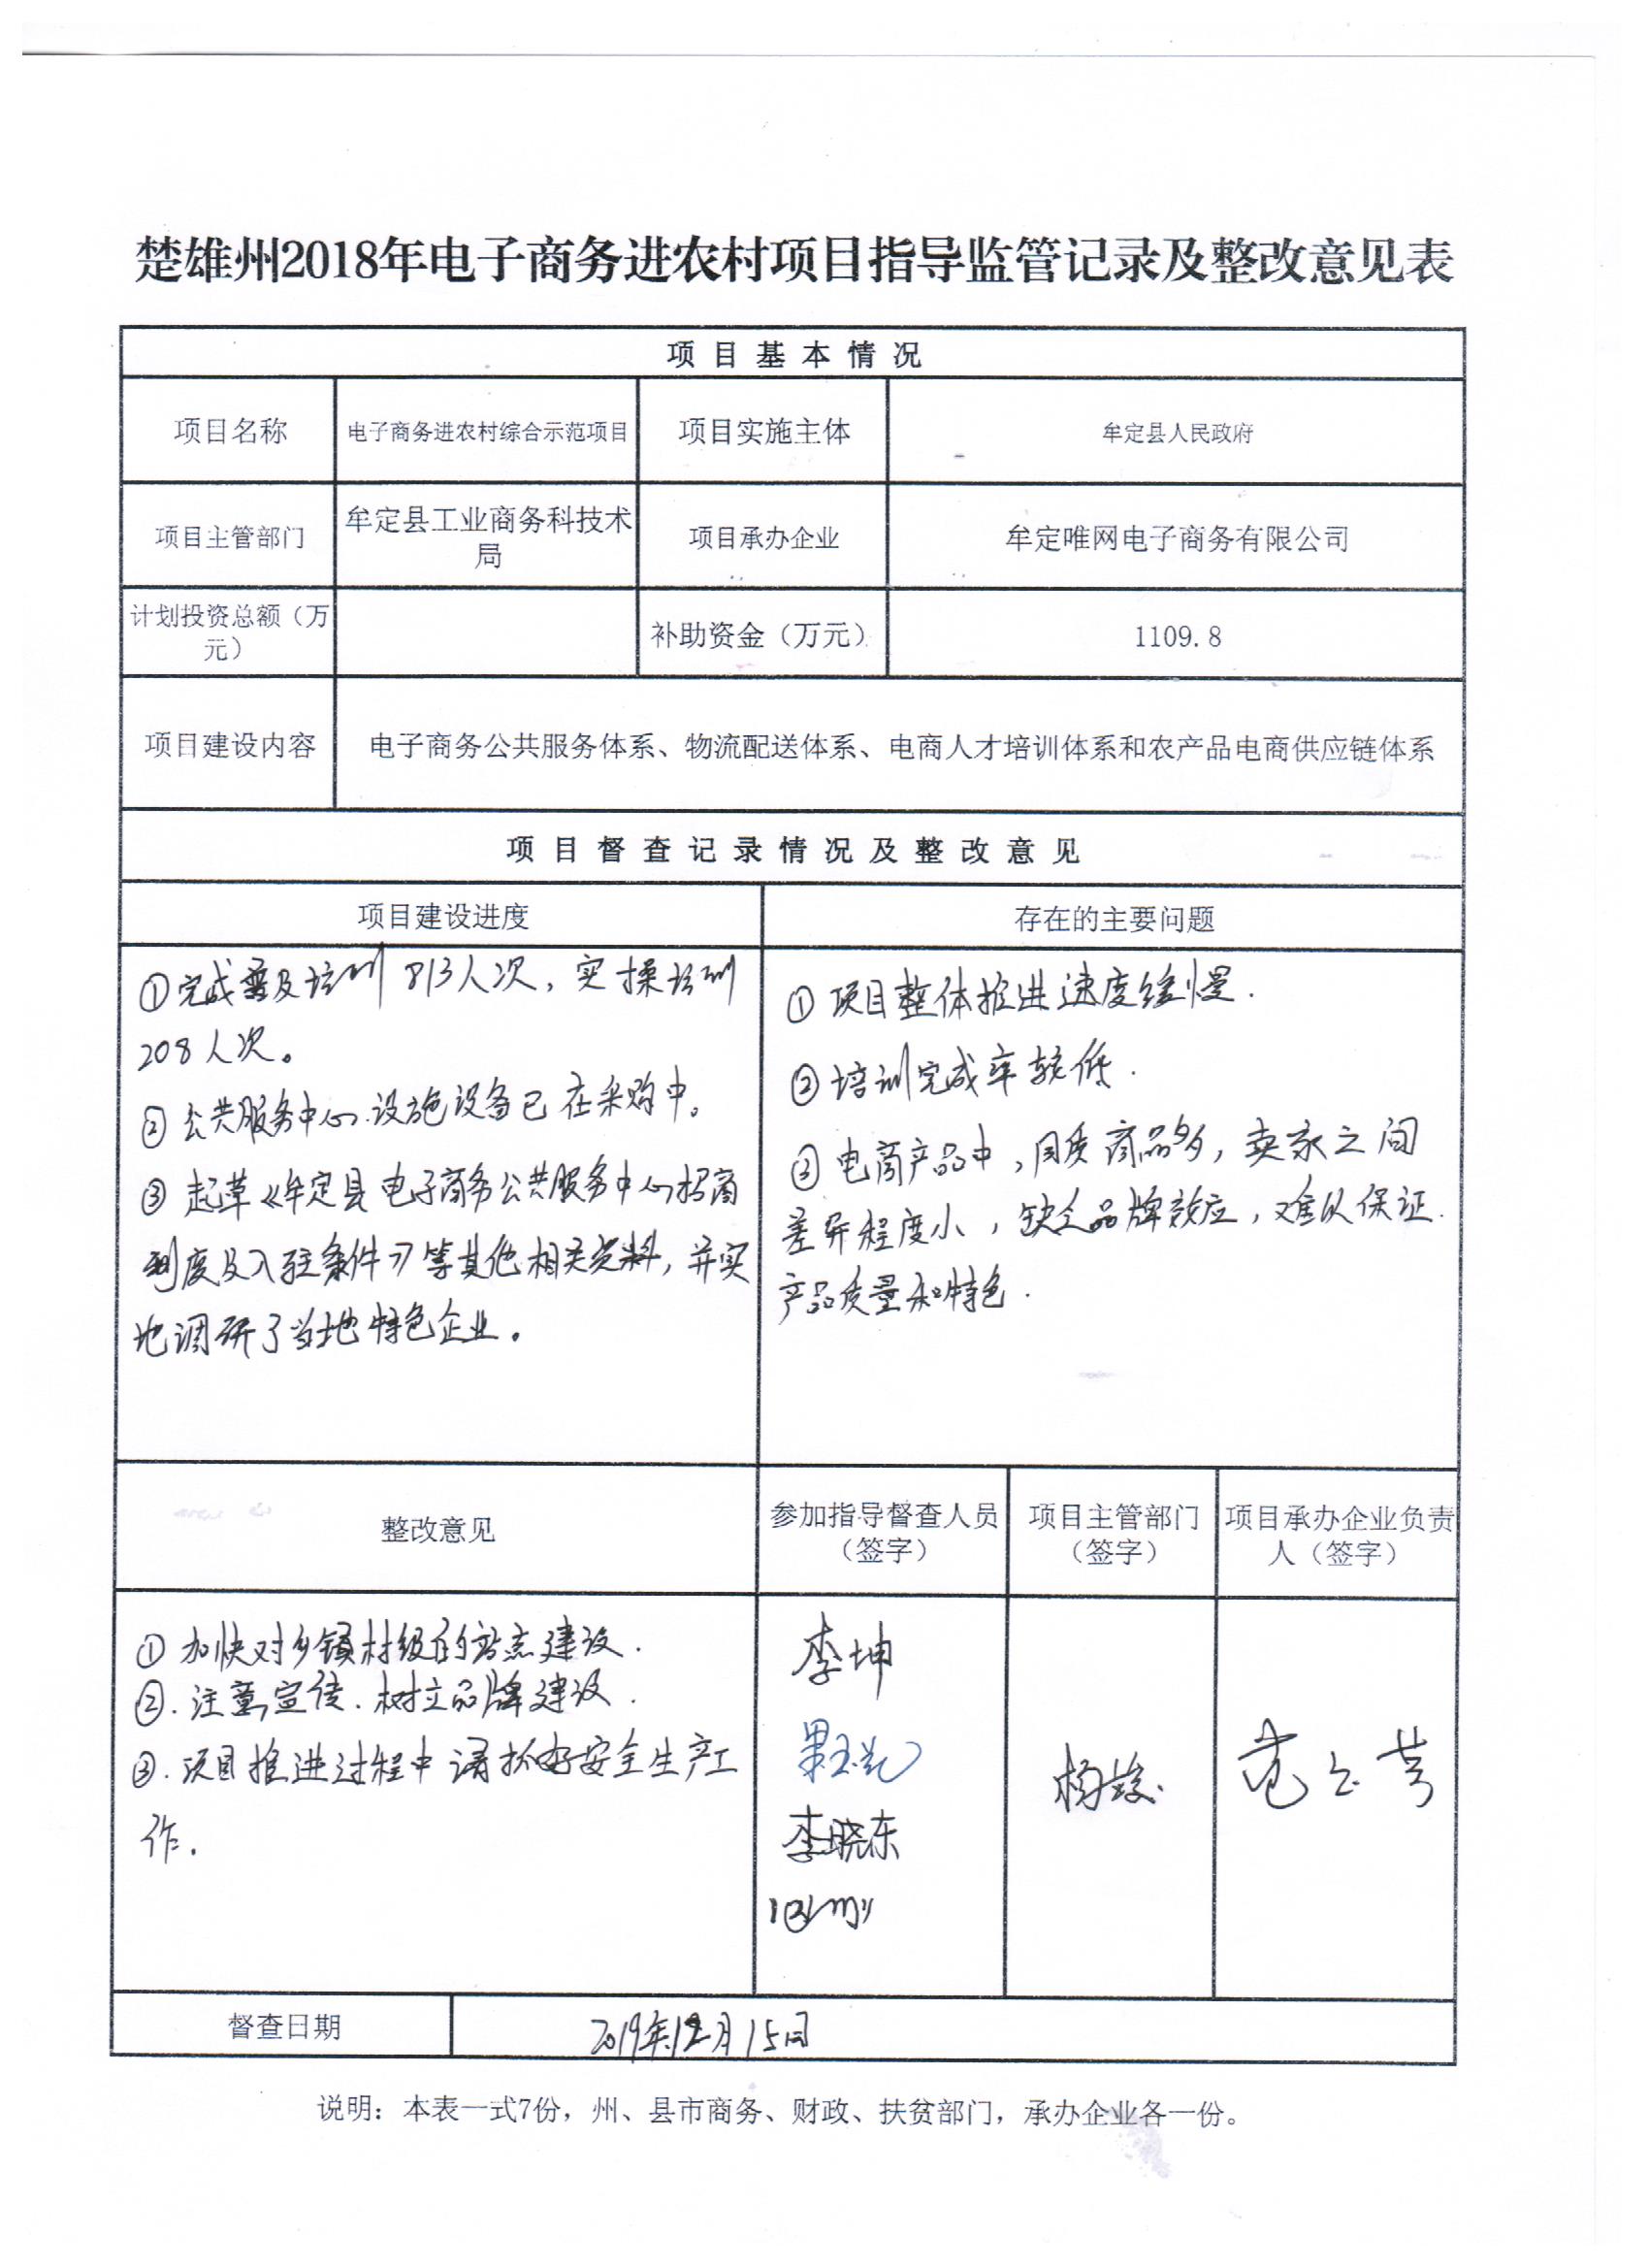 楚雄州2018年电子商务进农村项目指导监管记录及整改意见表
项目基本情况
项目名称
电子商务进农村综合示范项目
项目实施主体
牟定县人民政府
项目主管部门
牟定县工业商务科技术
局
项目承办企业
牟定唯网电子商务有限公司
计划投资总额（万
元）
补助资金（万元）
1109.8
项目建设内容
电子商务公共服务体系、物流配送体系、电商人才培训体系和农产品电商供应链体系
项目督查记录情况及整改意见
项目建设进度
存在的主要问题
①完成普及培训813人次，实操培训
208人次。
②公共服务中心设施设备已在采购中。
③起草《牟定县电子商务公共服务中心招商
制度及入驻条件》等其他相关资料，并实
地调研了当地特色企业。
①项目整体推进速度缓慢.
②培训完成率较低.
③电商产品中，同质商品多，卖家之间
差异程度小，缺乏品牌效应，难以保证
产品质量和特色.
整改意见
参加指导督查人员
（签字）
项目主管部门
（签字）
项目承办企业负责
人（签字）
①加快对乡镇村级的站点建设.
②.注意宣传.树立品牌建设.
③.项目推进过程中请抓好安全生产工
作.
李坤
李晓东
督查日期
2019年12月15日
说明：本表一式7份，州、县市商务、财政、扶贫部门，承办企业各一份。